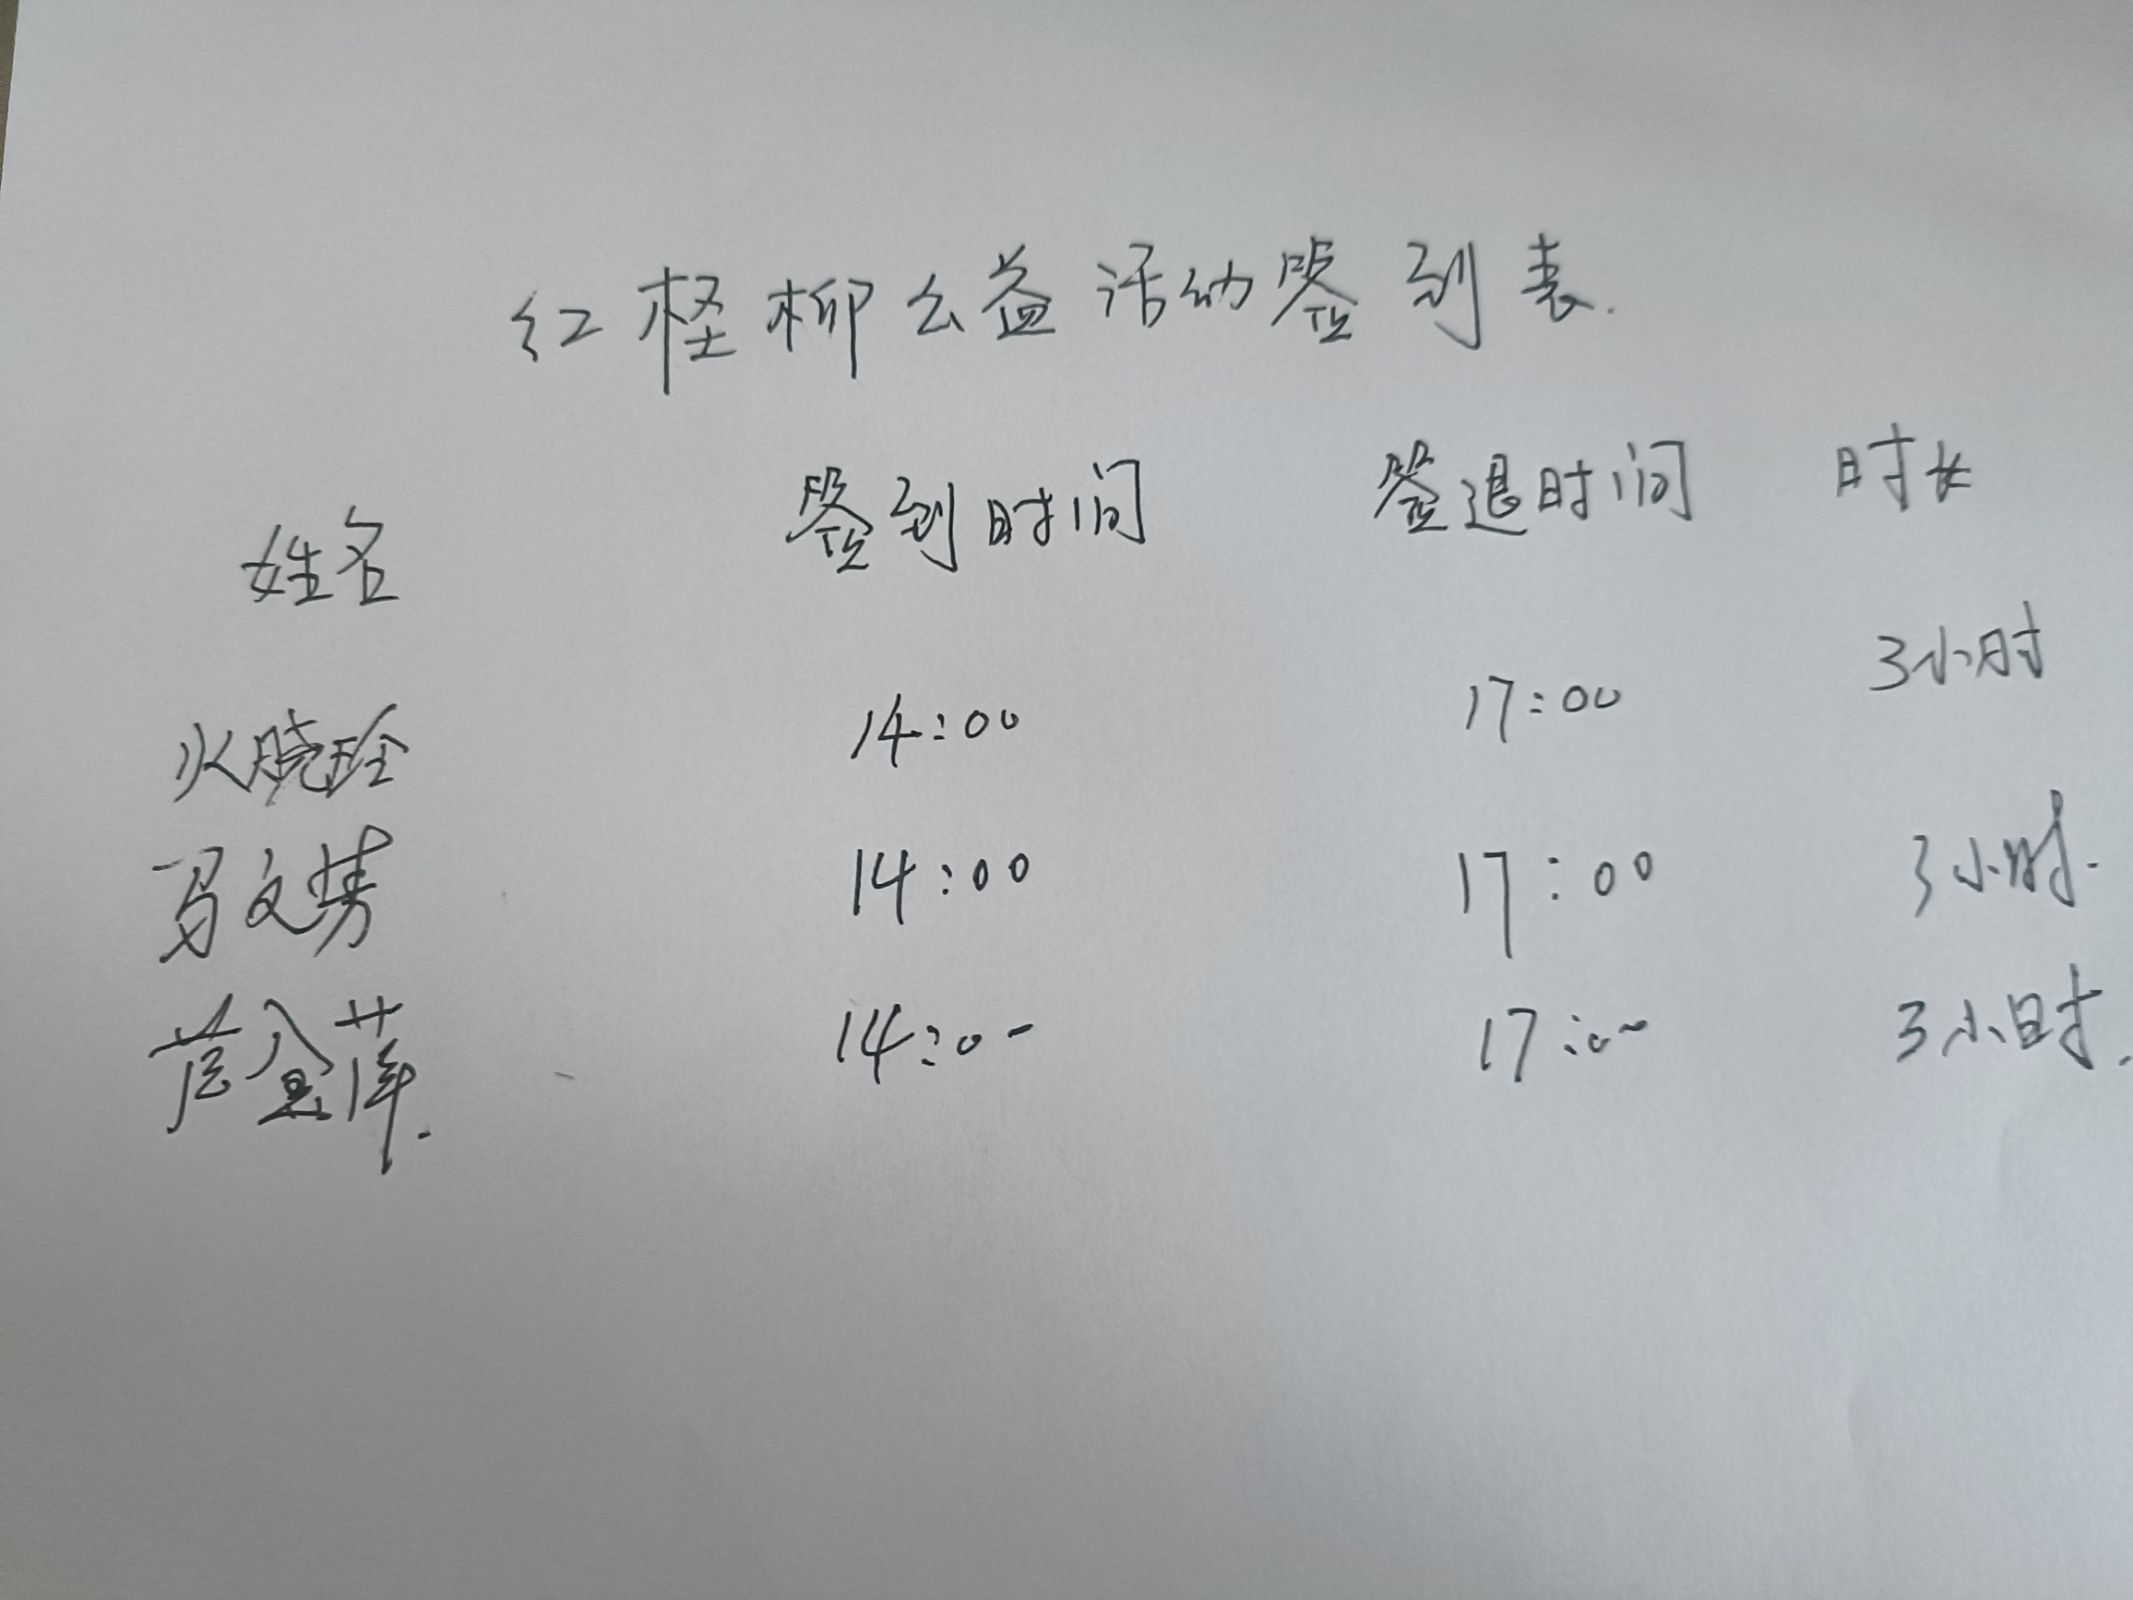 红柽柳公益活动签到表.
姓名 签到时间 签退时间 时长
火晓玲 14:00 17:00 3小时
马文芳 14:00 17:00 3小时.
14:00 17:00 3小时.